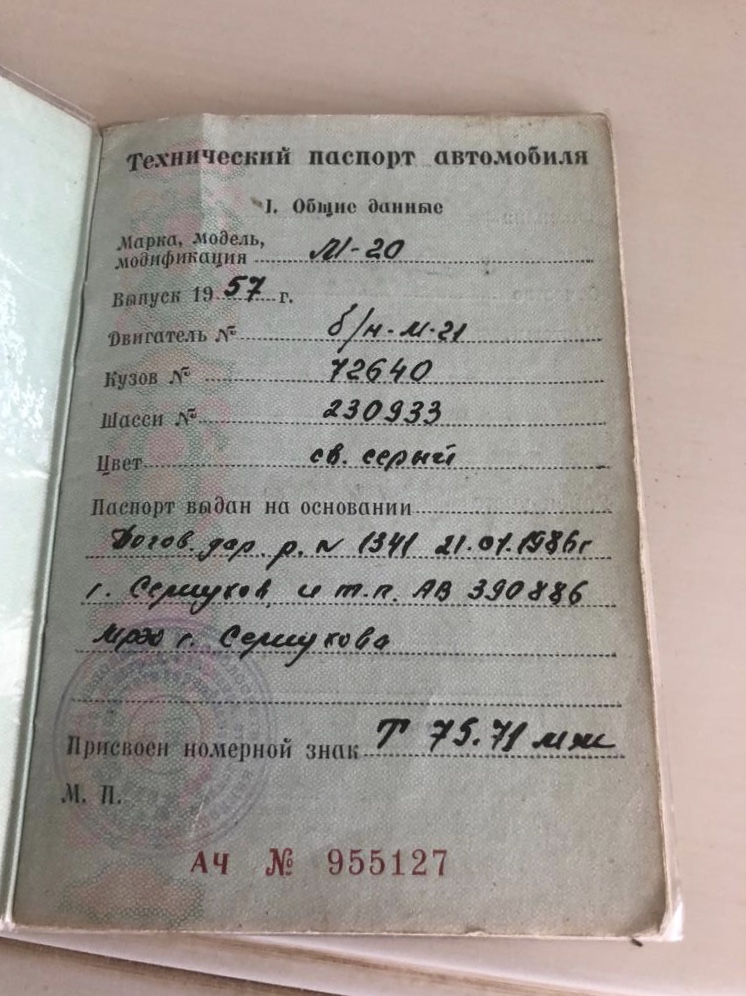 Технический паспорт автомобиля
I. Общие данные
Марка, модель,
модификация М-20
Выпуск 19 57 г.
Двигатель № б/н-М-21
Кузов № 72640
Шасси № 230933
Цвет св. серый
Паспорт выдан на основании
Догов. дар. р. N 1341 21.01.1986г
г. Серпухов и т.п. АВ 390886
мрэо г. Серпухова
Присвоен номерной знак Т 75.71 мж
М. П.
АЧ № 955127